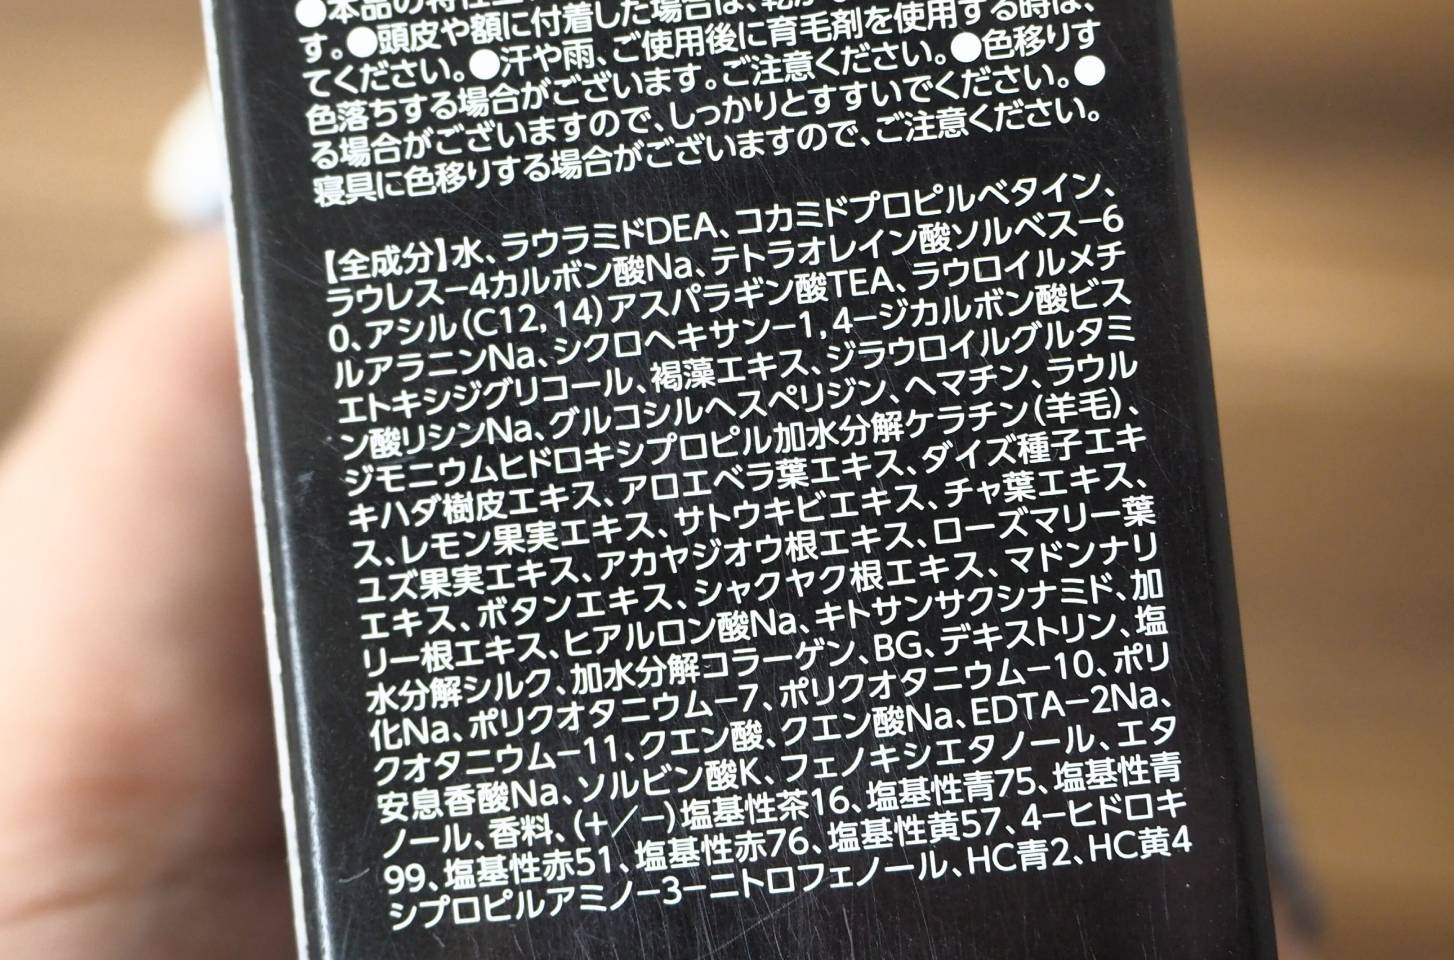 ●本品の特性上
す。●頭皮や額に付着した場合は、乾
てください。●汗や雨、ご使用後に育毛剤を使用する時は、
色落ちする場合がございます。ご注意ください。●色移りす
る場合がございますので、しっかりとすすいでください。●
寝具に色移りする場合がございますので、ご注意ください。
【全成分】水、ラウラミドDEA、コカミドプロピルベタイン、
ラウレス−4カルボン酸Na、テトラオレイン酸ソルベス−6
0、アシル(C12,14)アスパラギン酸TEA、ラウロイルメチ
ルアラニンNa、シクロヘキサン−1,4−ジカルボン酸ビス
エトキシジグリコール、褐藻エキス、ジラウロイルグルタミ
ン酸リシンNa、グルコシルヘスペリジン、ヘマチン、ラウル
ジモニウムヒドロキシプロピル加水分解ケラチン(羊毛)、
キハダ樹皮エキス、アロエベラ葉エキス、ダイズ種子エキ
ス、レモン果実エキス、サトウキビエキス、チャ葉エキス、
ユズ果実エキス、アカヤジオウ根エキス、ローズマリー葉
エキス、ボタンエキス、シャクヤク根エキス、マドンナリ
リー根エキス、ヒアルロン酸Na、キトサンサクシナミド、加
水分解シルク、加水分解コラーゲン、BG、デキストリン、塩
化Na、ポリクオタニウム−7、ポリクオタニウム−10、ポリ
クオタニウム−11、クエン酸、クエン酸Na、EDTA−2Na、
安息香酸Na、ソルビン酸K、フェノキシエタノール、エタ
ノール、香料、(+/−)塩基性茶16、塩基性青75、塩基性青
99、塩基性赤51、塩基性赤76、塩基性黄57、4−ヒドロキ
シプロピルアミノ−3−ニトロフェノール、HC青2、HC黄4